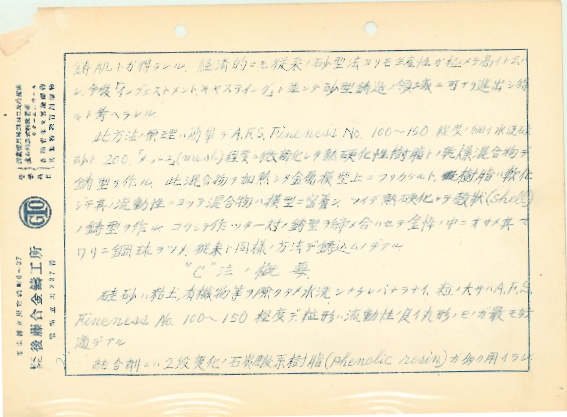 鋳肌トガ得ラレル、経済的ニモ従来ノ砂型法ヨリモ生産性ガ極メテ高イトコ
レ、今後「インヴェストメント、キャスティング」ト並ンデ砂型鋳造ノ領域ニ可ナリ進出シ得
ルト考ヘラレル
此方法ノ原理ハ簡単デA.F.S. Fineness No. 100〜150程度ノ細イ水洗硅
砂ト200 (mesh)程度ニ微粉化シタ熱硬化性樹脂トノ乾燥混合物デ
鋳型ヲ作ル、此混合物ヲ加熱シタ金属模型上ニフリカケルト、樹脂ハ軟化
シテ其ノ流動性ニヨッテ混合物ハ模型ニ密着シ、ツイデ熱硬化シテ殻状(shell)
ノ鋳型ヲ作ル コウシテ作ッタ一対ノ鋳型ヲ締メ合ハセテ金枠ノ中ニオサメ其マ
ワリニ鋼球ヲツメ、従来ト同様ノ方法デ鋳込ムノデアル
"C"法ノ概要
硅砂ハ粘土、有機物等ヲ除クタメ水洗シナケレバナラナイ、粒ノ大サハA.F.S.
Fineness No. 100〜150程度デ粒形ハ流動性ノ良イ丸形ノモノガ最モ好
適デアル
結合剤ニハ2段変化ノ石炭酸系樹脂(phenolic resin)ガ多ク用イラレ
GTO
後藤合金鋳工所